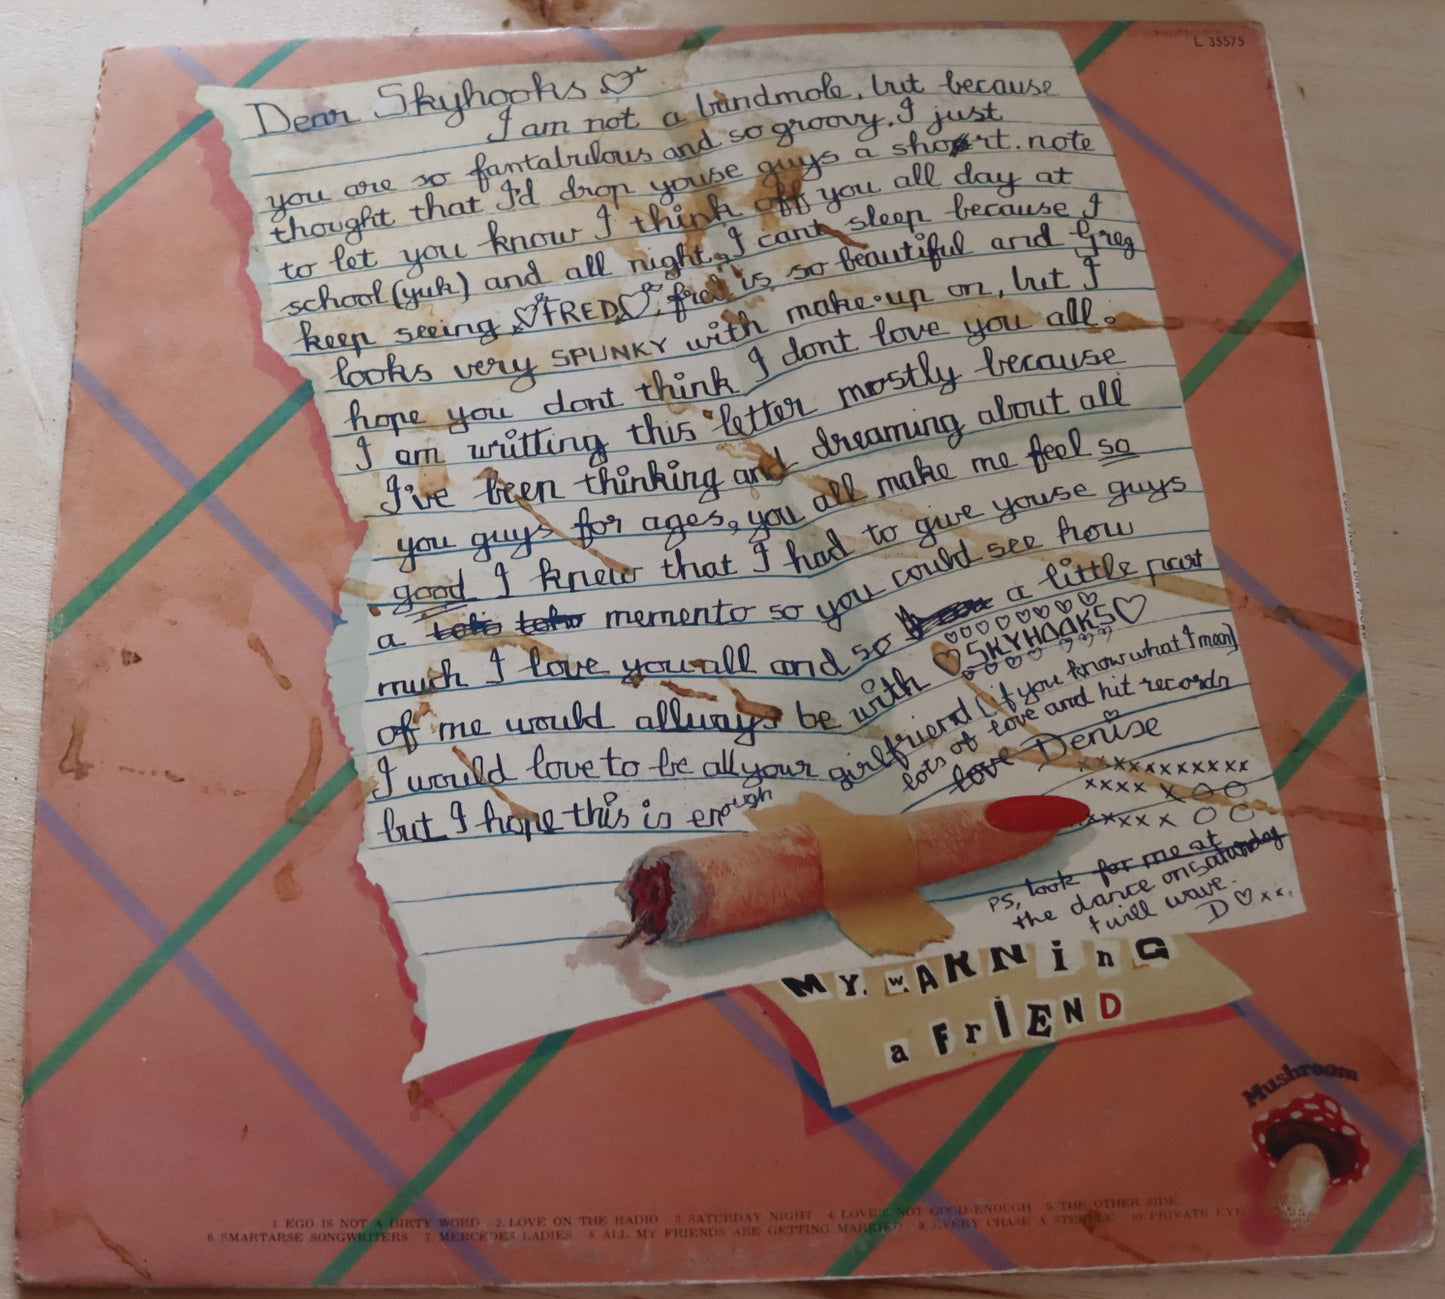 L 35575
Dear Skyhooks
I am not a bandmole, but because
you are so fantabulous and so groovy. I just
thought that I'd drop youse guys a short. note
to let you know I think off you all day at
school (yuk) and all night, I cant sleep because I
keep seeing FRED, fred is so beautiful and Greg
looks very SPUNKY with make-up on, but I
hope you dont think I dont love you all.
I am writting this letter mostly because
I've been thinking and dreaming about all
you guys for ages, you all make me feel so
good I knew that I had to give youse guys
a memento so you could see how
much I love you all and so a little part
of me would allways be with SKYHOOKS
I would love to be all your girlfriend (if you know what I mean)
but I hope this is enough
lots of love and hit records
love Denise
xxxxxxxxxxx
xxxx x O O
xxxxx x O O
PS, look for me at
the dance on saturday
I will wave.
D xx.
MY. wARNinG
a FrIEND
Mushroom
1 EGO IS NOT A DIRTY WORD 2 LOVE ON THE RADIO 3 SATURDAY NIGHT 4 LOVE'S NOT GOOD ENOUGH 5 THE OTHER SIDE
6 SMARTARSE SONGWRITERS 7 MERCEDES LADIES 8 ALL MY FRIENDS ARE GETTING MARRIED 9 EVERY CHASE A STEEPLE 10 PRIVATE EYE